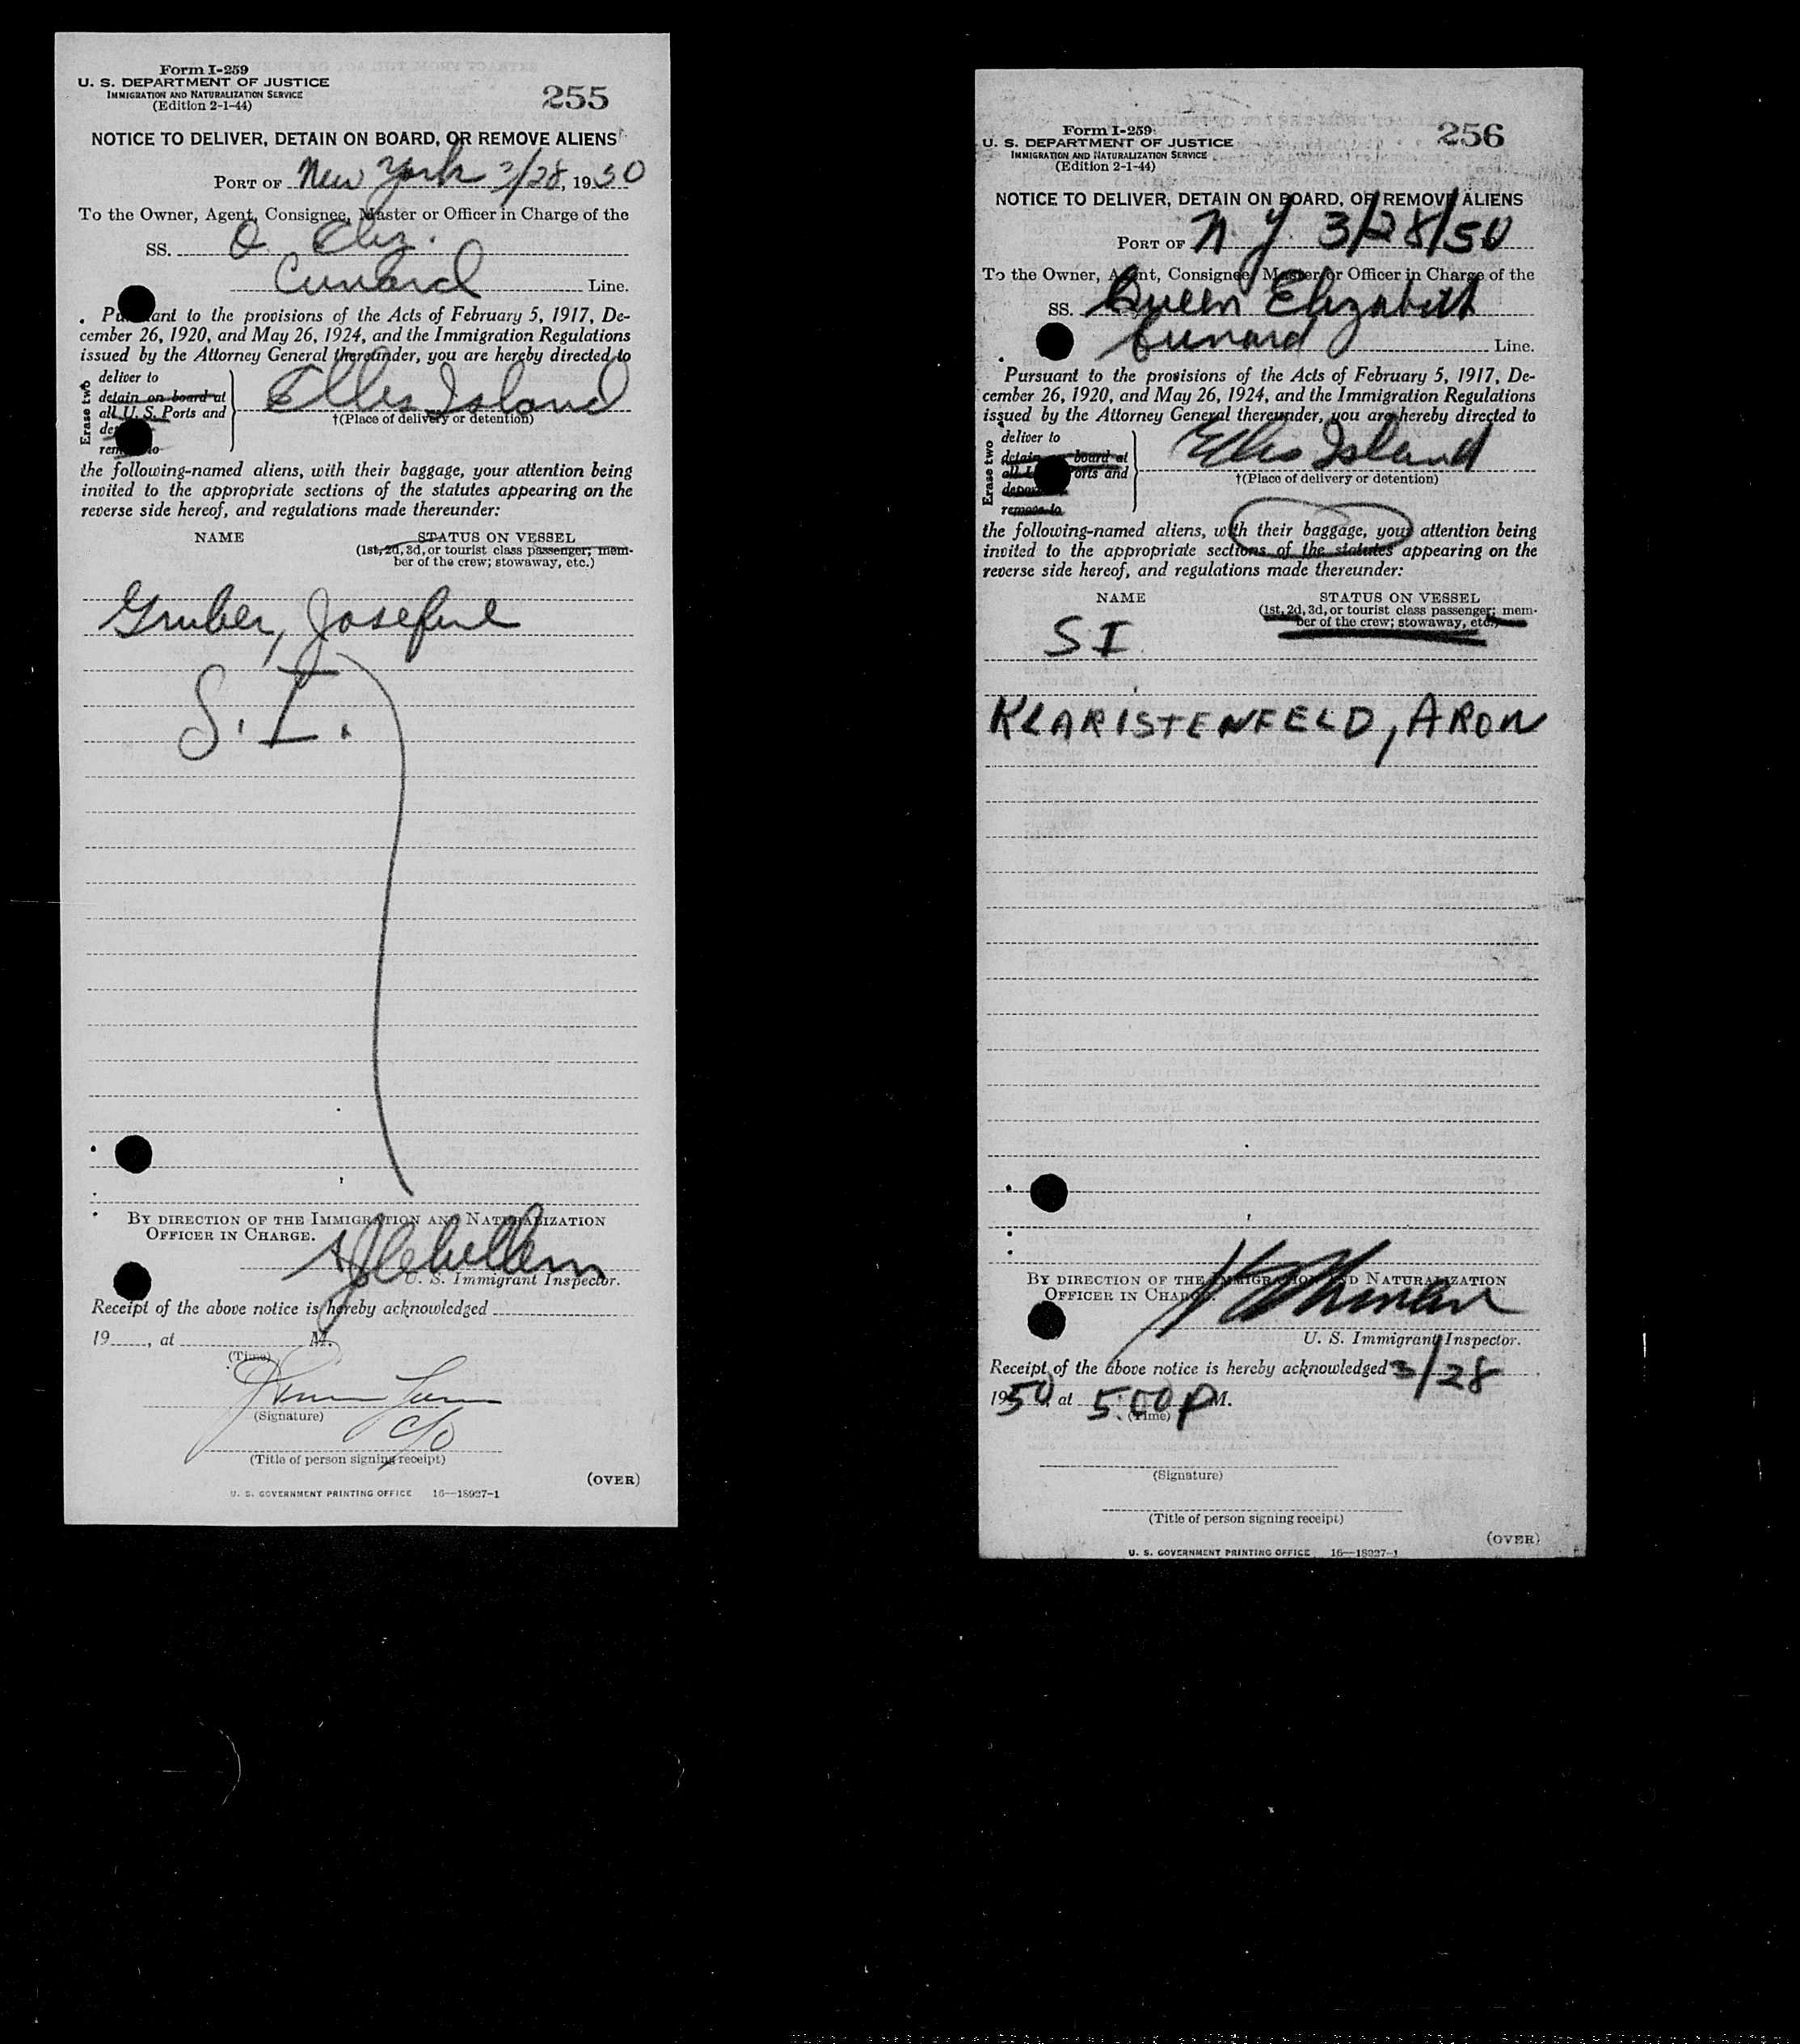 Form I-259
U. S. DEPARTMENT OF JUSTICE
IMMIGRATION AND NATURALIZATION SERVICE
(Edition 2-1-44)
255
NOTICE TO DELIVER, DETAIN ON BOARD, OR REMOVE ALIENS
PORT OF New York 3/28, 1950
To the Owner, Agent, Consignee, Master or Officer in Charge of the
SS. Q Eliz.
Cunard Line.
Pursuant to the provisions of the Acts of February 5, 1917, De-
cember 26, 1920, and May 26, 1924, and the Immigration Regulations
issued by the Attorney General thereunder, you are hereby directed to
Erase two
deliver to
detain on board at
all U. S. Ports and
remove to
Ellis Island
†(Place of delivery or detention)
the following-named aliens, with their baggage, your attention being
invited to the appropriate sections of the statutes appearing on the
reverse side hereof, and regulations made thereunder:
NAME STATUS ON VESSEL
(1st, 2d, 3d, or tourist class passenger; mem-
ber of the crew; stowaway, etc.)
Gruber, Josefine
S. I.
BY DIRECTION OF THE IMMIGRATION AND NATURALIZATION
OFFICER IN CHARGE.
U. S. Immigrant Inspector.
Receipt of the above notice is hereby acknowledged
19 , at M.
(Time)
(Signature)
c/o
(Title of person signing receipt)
(OVER)
U. S. GOVERNMENT PRINTING OFFICE 16—18927-1
Form I-259
U. S. DEPARTMENT OF JUSTICE
IMMIGRATION AND NATURALIZATION SERVICE
(Edition 2-1-44)
256
NOTICE TO DELIVER, DETAIN ON BOARD, OR REMOVE ALIENS
PORT OF N Y. 3/28/50
To the Owner, Agent, Consignee, Master or Officer in Charge of the
SS. Queen Elizabeth
Cunard Line.
Pursuant to the provisions of the Acts of February 5, 1917, De-
cember 26, 1920, and May 26, 1924, and the Immigration Regulations
issued by the Attorney General thereunder, you are hereby directed to
Erase two
deliver to
detain board at
all U. Ports and
deport
remove to
Ellis Island
†(Place of delivery or detention)
the following-named aliens, with their baggage, your attention being
invited to the appropriate sections of the statutes appearing on the
reverse side hereof, and regulations made thereunder:
NAME STATUS ON VESSEL
(1st, 2d, 3d, or tourist class passenger; mem-
ber of the crew; stowaway, etc.)
SI
KLARISTENFELD, ARON
BY DIRECTION OF THE IMMIGRATION AND NATURALIZATION
OFFICER IN CHARGE.
U. S. Immigrant Inspector.
Receipt of the above notice is hereby acknowledged 3/28
1950, at 5:00 P M.
(Time)
(Signature)
(Title of person signing receipt)
(OVER)
U. S. GOVERNMENT PRINTING OFFICE 16—18927-1